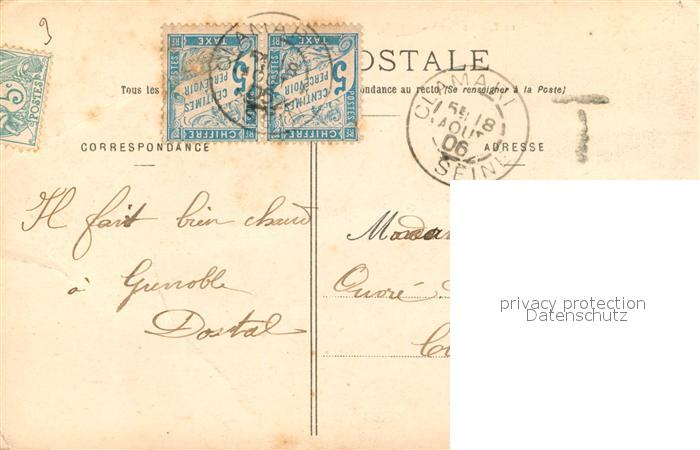 3
OSTALE
Tous les
ndance au recto. (Se renseigner à la Poste)
CORRESPONDANCE
ADRESSE
5
CENTIMES
PERCEVOIR
CHIFFRE
TAXE
POSTES
RF
5
CENTIMES
PERCEVOIR
CHIFFRE
TAXE
POSTES
5c
POSTES
CLAMART
18
AOUT
06
SEINE
T
Il fait bien chaud
à Grenoble
Dostal
Madam
privacy protection
Datenschutz